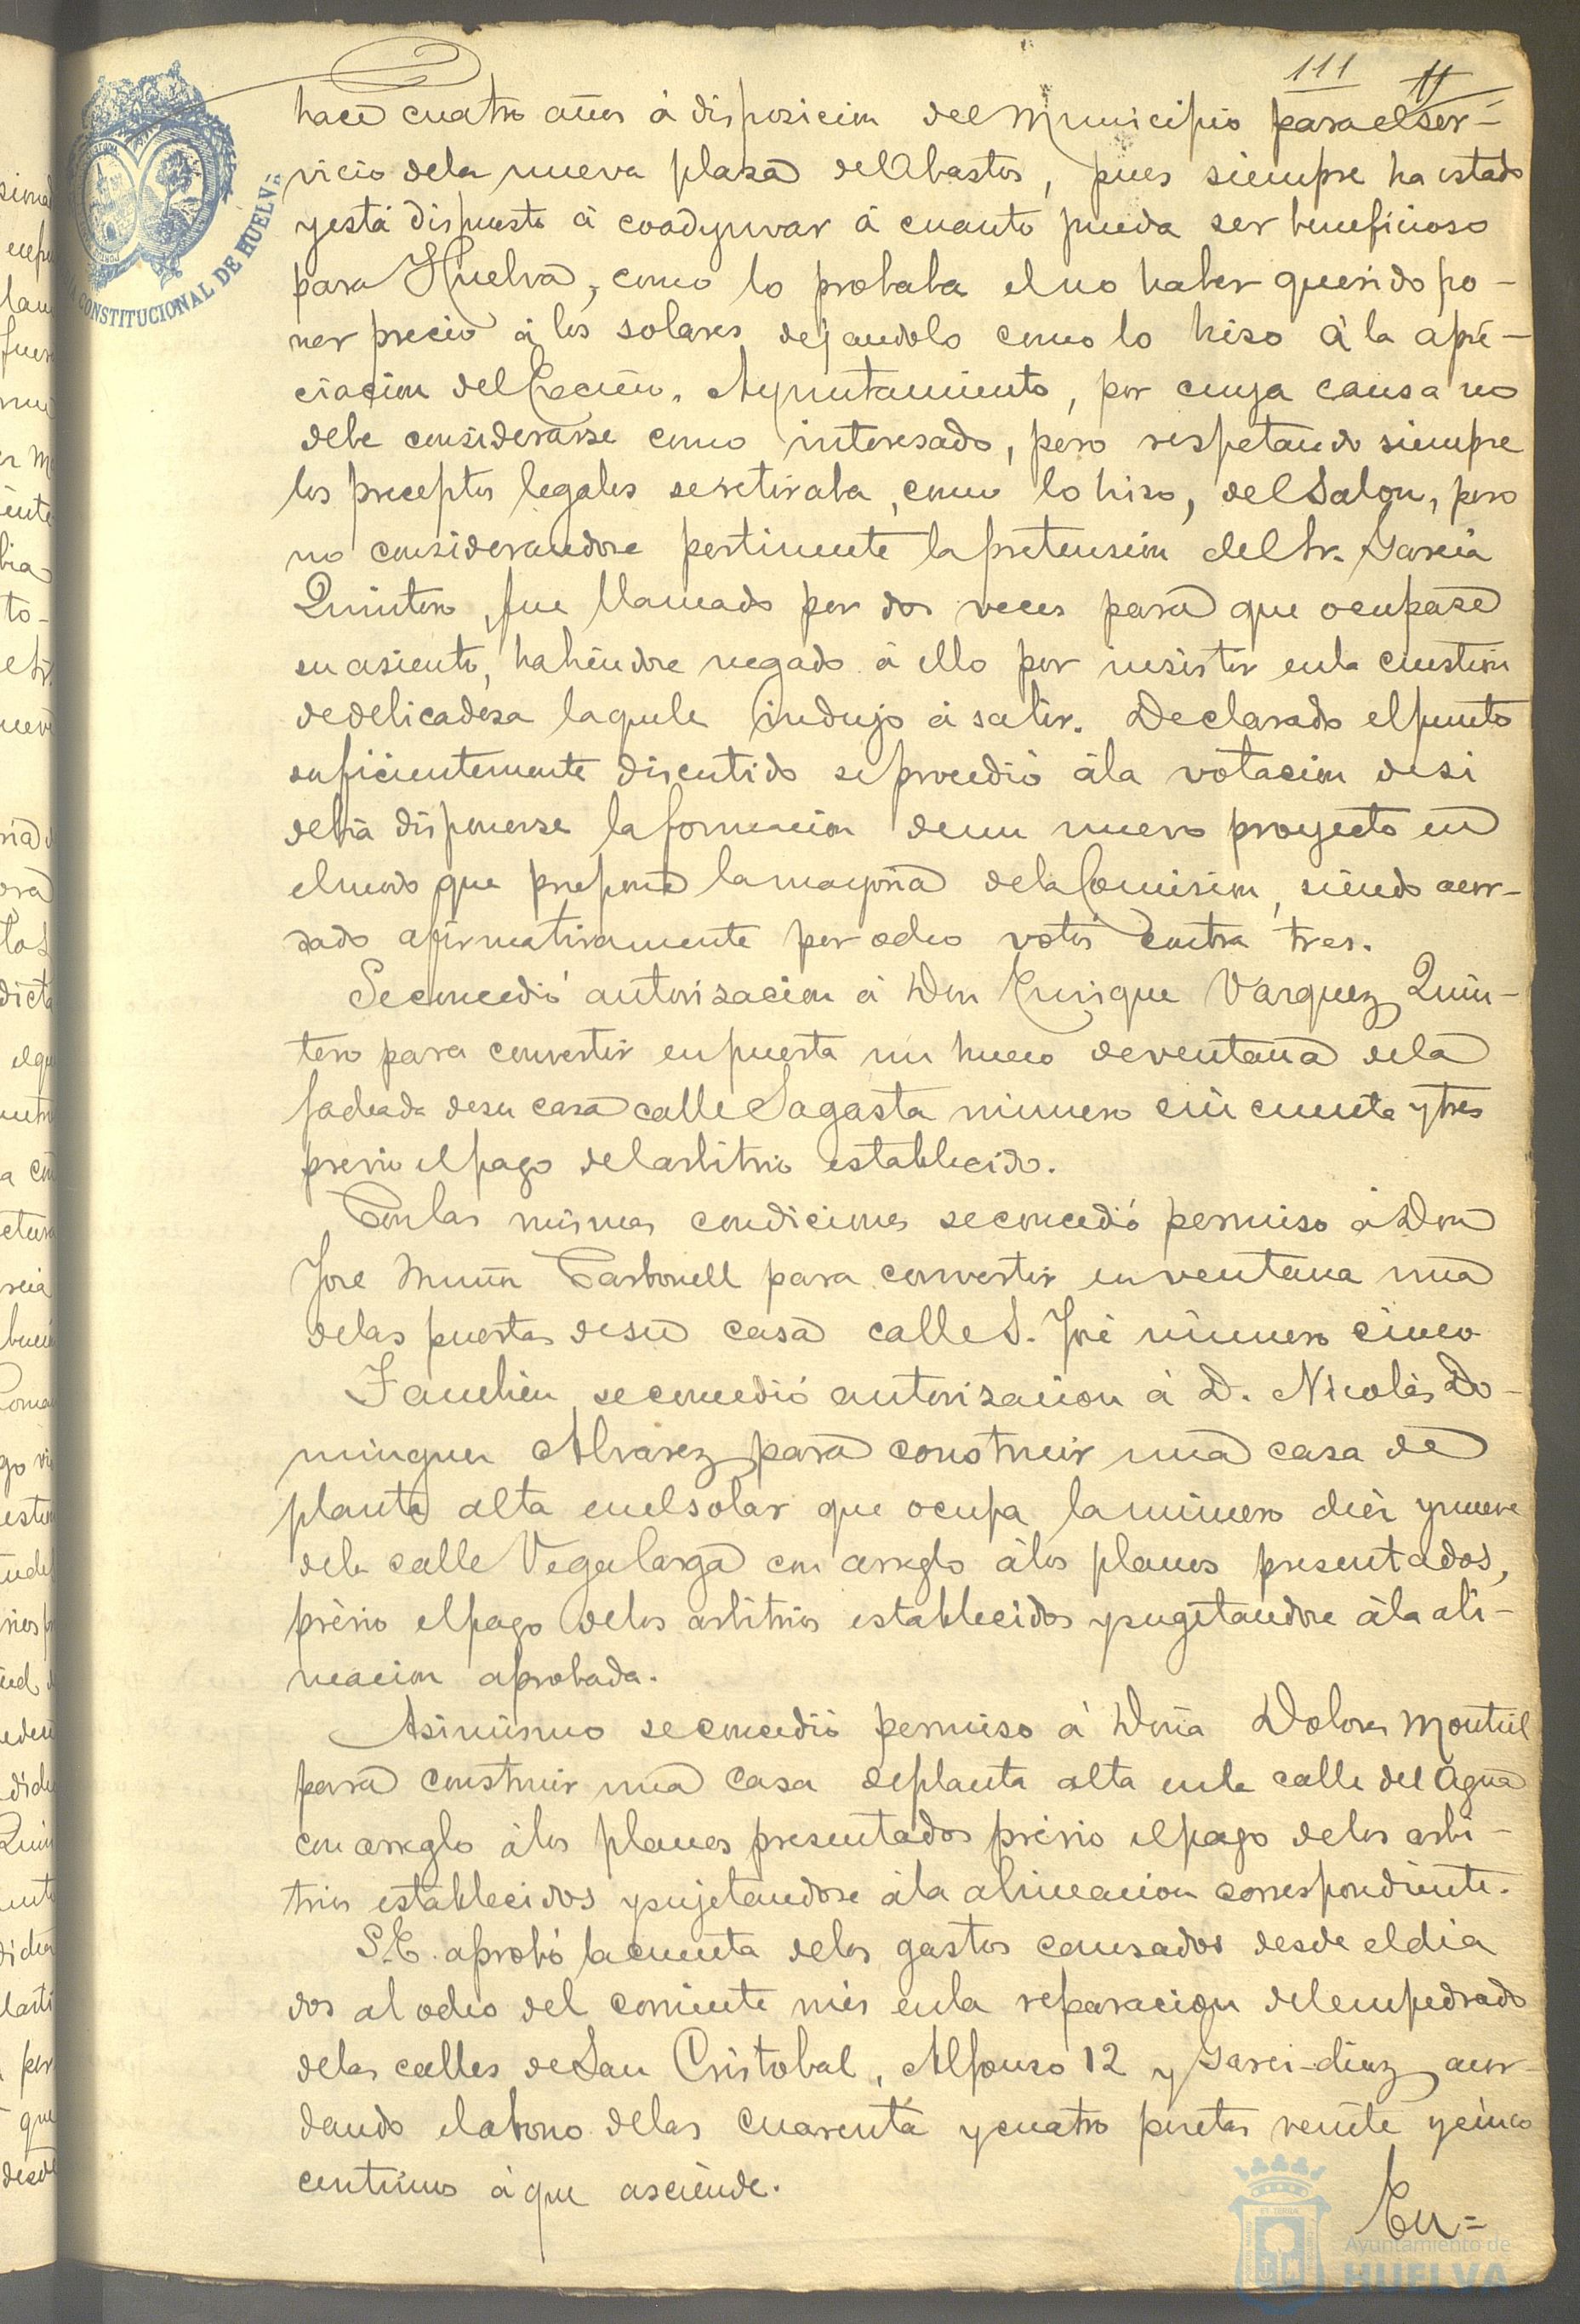 111 11
hace cuatro años á disposicion del Municipio para el ser-
vicio de la nueva plaza de Abastos, pues siempre ha estado
y está dispuesto á coadyuvar á cuanto pueda ser beneficioso
para Huelva, como lo probaba el no haber querido po-
ner precio á los solares dejandolo como lo hiso á la apre-
ciacion del Excmo. Ayuntamiento, por cuya causa no
debe considerarse como interesado, pero respetando siempre
los preceptos legales se retiraba, como lo hiso, del Salon, pero
no considerandose pertinente la pretension del Sr. Garcia
Quintero, fue llamado por dos veces para que ocupase
su asiento, habiendose negado á ello por insistir en la cuestion
de delicadesa la que le indujo á salir. Declarado el punto
suficientemente discutido se procedió á la votacion de si
debia disponerse la formacion de un nuevo proyecto en
el modo que propone la mayoria de la Comision, siendo acor-
dado afirmativamente por ocho votos contra tres.
Se concedió autorisacion á Don Enrique Vazquez Quin-
tero para convertir en puerta un hueco de ventana de la
fachada de su casa calle Sagasta número cincuenta y tres
previo el pago del arbitrio establecido.
Con las mismas condiciones se concedió permiso á Don
José Muñoz Carbonell para convertir en ventana una
de las puertas de su casa calle S. José número cinco
Tambien se concedió autorisacion á D. Nicolás Do-
minguez Alvarez para construir una casa de
planta alta en el solar que ocupa la número diez y nueve
de la calle Vega larga con arreglo á los planos presentados,
prévio el pago de los arbitrios establecidos y sugetandose á la ali-
neacion aprobada.
Asimismo se concedió permiso á Doña Dolores Montiel
para construir una casa de planta alta en la calle del Agua
con arreglo á los planos presentados prévio el pago de los arbi-
trios establecidos y sujetandose á la alineacion correspondiente.
S.E. aprobó la cuenta de los gastos causados desde el dia
dos al ocho del corriente mes en la reparacion del empedrado
de las calles de San Cristobal, Alfonso 12 y Garci-diaz acor-
dando el abono de las cuarenta y cuatro pesetas veinte y cinco
centimos á que asciende.
En=
CONSTITUCIONAL DE HUELVA
Ayuntamiento de
HUELVA